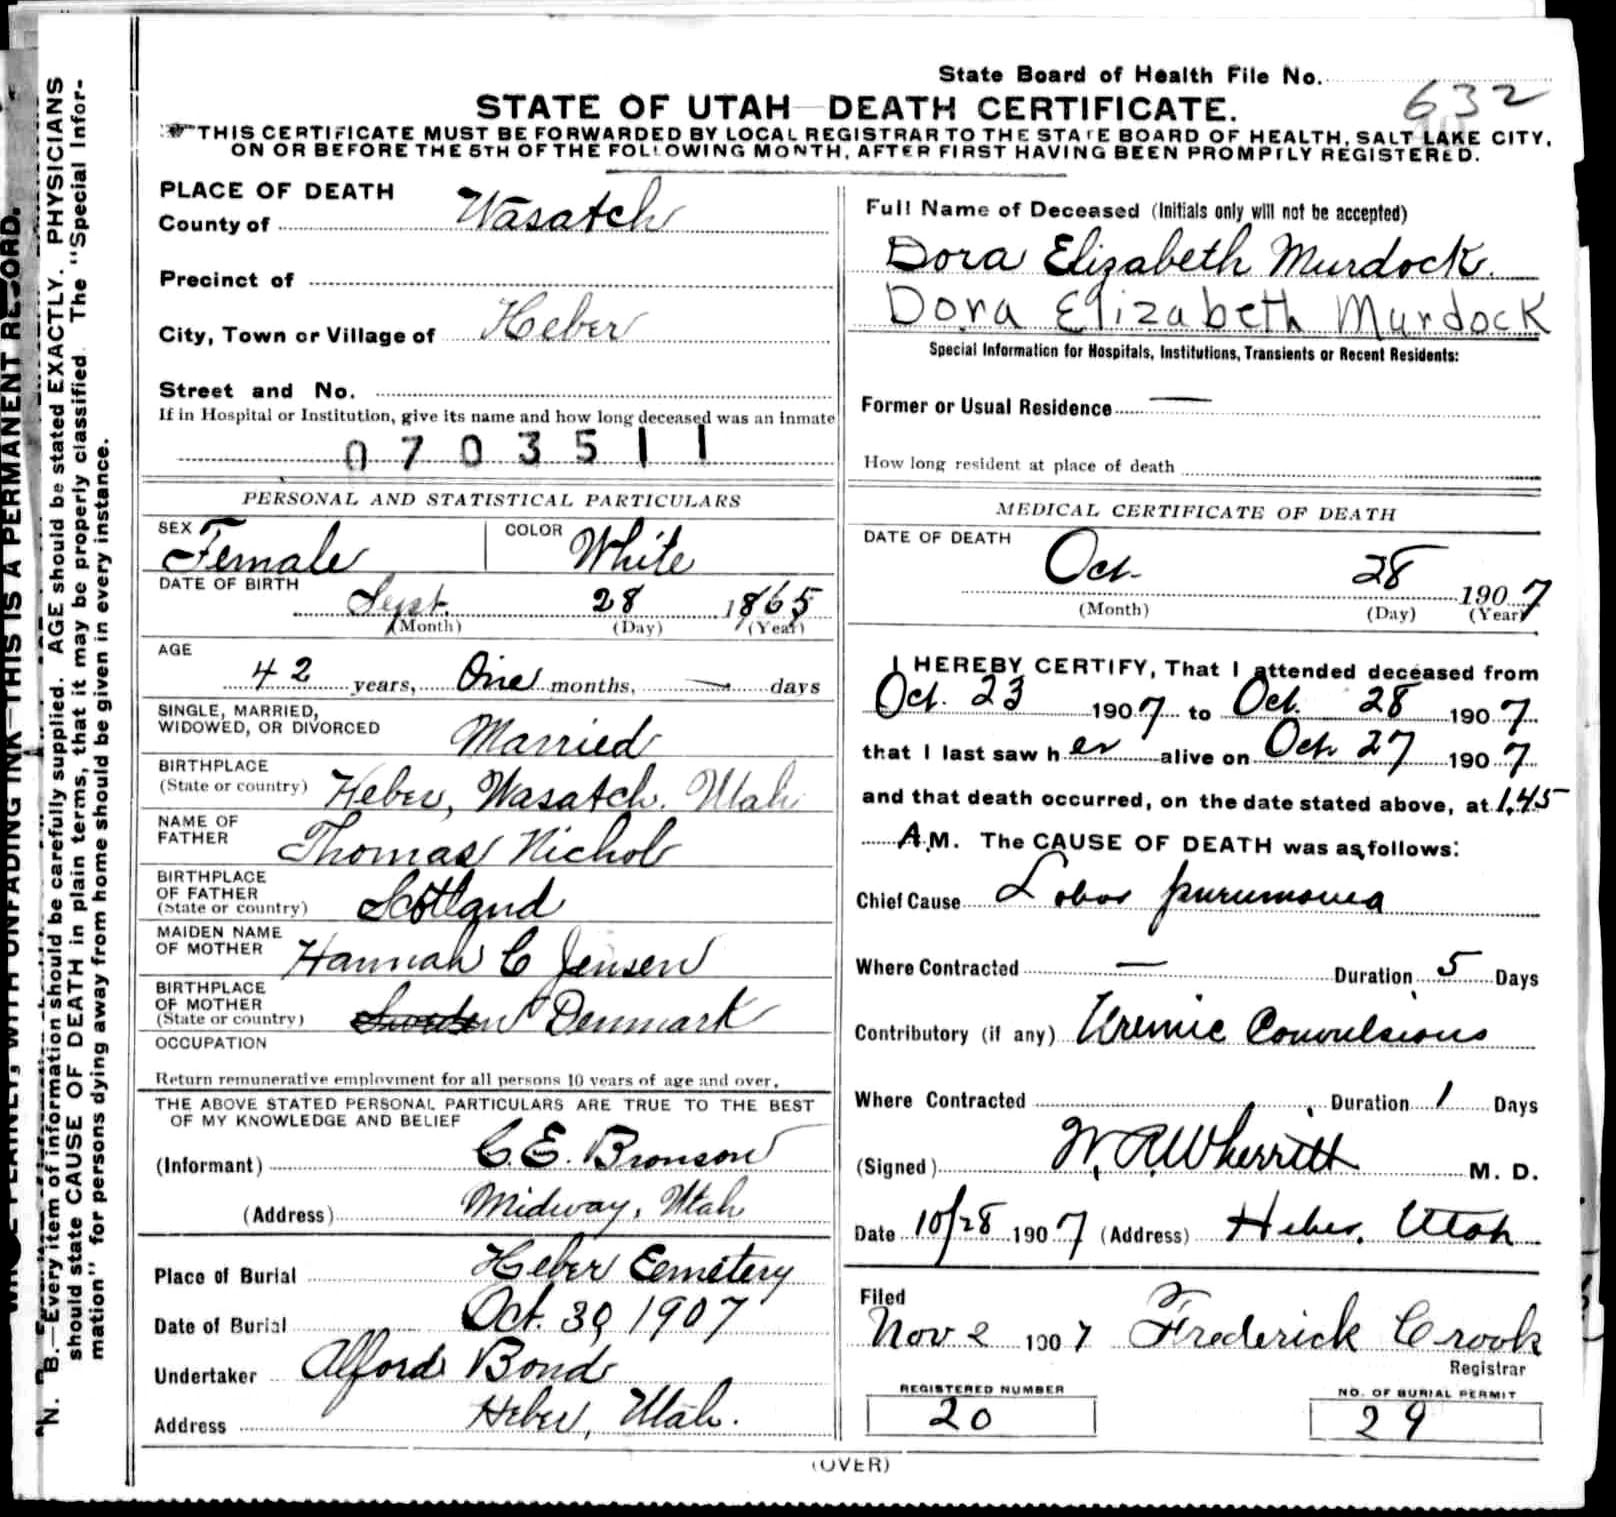 State Board of Health File No. 632
STATE OF UTAH—DEATH CERTIFICATE.
THIS CERTIFICATE MUST BE FORWARDED BY LOCAL REGISTRAR TO THE STATE BOARD OF HEALTH, SALT LAKE CITY,
ON OR BEFORE THE 5TH OF THE FOLLOWING MONTH, AFTER FIRST HAVING BEEN PROMPTLY REGISTERED.
PLACE OF DEATH
County of Wasatch
Precinct of
City, Town or Village of Heber
Street and No.
If in Hospital or Institution, give its name and how long deceased was an inmate
0703511
PERSONAL AND STATISTICAL PARTICULARS
SEX Female COLOR White
DATE OF BIRTH Sept. 28 1865
(Month) (Day) (Year)
AGE
42 years, One months, — days
SINGLE, MARRIED,
WIDOWED, OR DIVORCED Married
BIRTHPLACE
(State or country) Heber, Wasatch. Utah
NAME OF
FATHER Thomas Nichol
BIRTHPLACE
OF FATHER
(State or country) Scotland
MAIDEN NAME
OF MOTHER Hannah C Jensen
BIRTHPLACE
OF MOTHER
(State or country) Sweden Denmark
OCCUPATION
Return remunerative employment for all persons 10 years of age and over.
THE ABOVE STATED PERSONAL PARTICULARS ARE TRUE TO THE BEST
OF MY KNOWLEDGE AND BELIEF
(Informant) C. E. Bronson
(Address) Midway, Utah
Place of Burial Heber Cemetery
Date of Burial Oct. 30, 1907
Undertaker Alford Bond
Address Heber, Utah.
Full Name of Deceased (Initials only will not be accepted)
Dora Elizabeth Murdock.
Dora Elizabeth Murdock
Special Information for Hospitals, Institutions, Transients or Recent Residents:
Former or Usual Residence —
How long resident at place of death
MEDICAL CERTIFICATE OF DEATH
DATE OF DEATH
Oct. 28 1907
(Month) (Day) (Year)
I HEREBY CERTIFY, That I attended deceased from
Oct. 23 1907 to Oct. 28 1907
that I last saw her alive on Oct 27 1907
and that death occurred, on the date stated above, at 1.45
A.M. The CAUSE OF DEATH was as follows:
Chief Cause Lobar pneumonia
Where Contracted — Duration 5 Days
Contributory (if any) Uremic Convulsions
Where Contracted Duration 1 Days
(Signed) W. R. Wherritt M. D.
Date 10/28 1907 (Address) Heber, Utah
Filed
Nov 2 1907 Frederick Crook
Registrar
REGISTERED NUMBER
20
NO. OF BURIAL PERMIT
29
(OVER)
N. B.—Every item of information should be carefully supplied. AGE should be stated EXACTLY. PHYSICIANS
should state CAUSE OF DEATH in plain terms, that it may be properly classified. The "Special Infor-
mation" for persons dying away from home should be given in every instance.
PLAINLY, WITH UNFADING INK—THIS IS A PERMANENT RECORD.